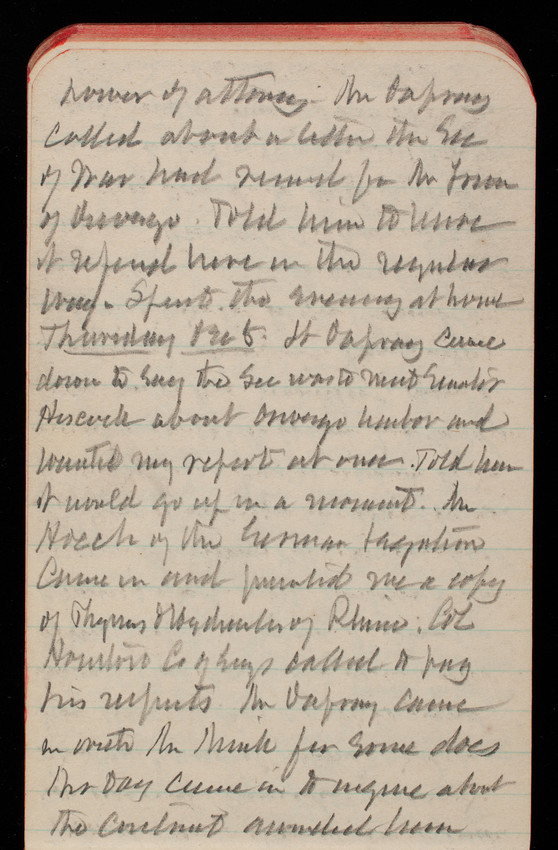 power of attorney. Mr Dapray
called about a letter the Sec
of War had received for the Town
of Oswego. Told him to have
it referred here in the regular
way. Spent the evening at home
Thursday Dec 5. Lt Dapray came
down to say the Sec was to meet Senator
Hiscock about Oswego harbor and
wanted my report at once. Told him
it would go up in a moment. Mr
of the German Legation
Came in and presented me a copy
of Rhine. Col
Co of Engs called to pay
his respects. Mr Dapray came
in with Mr for some
Day came in to inquire about
the Contract awarded him